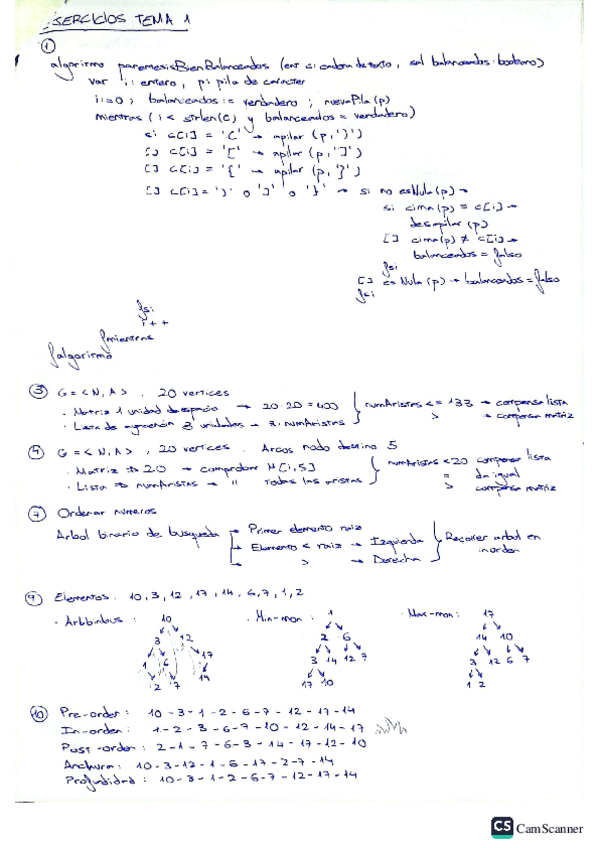 EJERCICIOS TEMA 1
①
algoritmo parentesisBienBalanceados (ent c: cadena de texto, sal balanceados: booleano)
var i: entero, p: pila de caracter
i:=0; balanceados := verdadero ; nuevaPila (p)
mientras (i < strlen(c) y balanceados = verdadero)
si c[i] = '(' → apilar (p, ')')
[] c[i] = '[' → apilar (p, ']')
[] c[i] = '{' → apilar (p, '}')
[] c[i] = ')' o ']' o '}' → si no esNula (p) →
si cima (p) = c[i] →
desapilar (p)
[] cima (p) ≠ c[i] →
balanceados = falso
fsi
[] esNula (p) → balanceados = falso
fsi
fsi
i++
fmientras
falgoritmo
③ G = < N, A > , 20 vertices
· Matriz 1 unidad de espacio → 20·20 = 400
· Lista de 3 unidades → 3·numAristas
numAristas <= 133 → compensa lista
> → compensa matriz
④ G = < N, A > , 20 vertices . Arcos nodo destino 5
· Matriz ⇒ 20 → comprobar M[i,5]
· Lista ⇒ numAristas → " todas las aristas
numAristas < 20 compensa lista
= da igual
> compensa matriz
⑦ Ordenar numeros
Arbol binario de busqueda → Primer elemento raiz
→ Elemento < raiz → Izquierda
→ > → Derecha
Recorrer arbol en
inorden
⑨ Elementos: 10, 3, 12, 17, 14, 6, 7, 1, 2
· Arbbinbus :
10
3 12
1 6 17
2 7 14
· Min-mon :
1
2 6
3 14 12 7
17 10
· Max-mon :
17
14 10
3 12 6 7
1 2
⑩ Pre-orden : 10 - 3 - 1 - 2 - 6 - 7 - 12 - 17 - 14
In-orden : 1 - 2 - 3 - 6 - 7 - 10 - 12 - 14 - 17
Post-orden : 2 - 1 - 7 - 6 - 3 - 14 - 17 - 12 - 10
Anchura : 10 - 3 - 12 - 1 - 6 - 17 - 2 - 7 - 14
Profundidad : 10 - 3 - 1 - 2 - 6 - 7 - 12 - 17 - 14
CS CamScanner